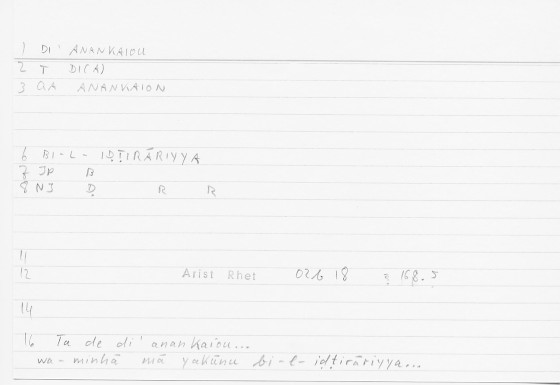 1 DI' ANANKAIOU
2 T DI(A)
3 QA ANANKAION
6 BI-L-IḌṬIRĀRIYYA
7 JP B
8 NI Ḍ R R
11
12 Arist Rhet 02b 18 = 168.5
14
16 Ta de di' anankaiou...
wa-minhā mā yakūnu bi-l-iḍṭirāriyya...